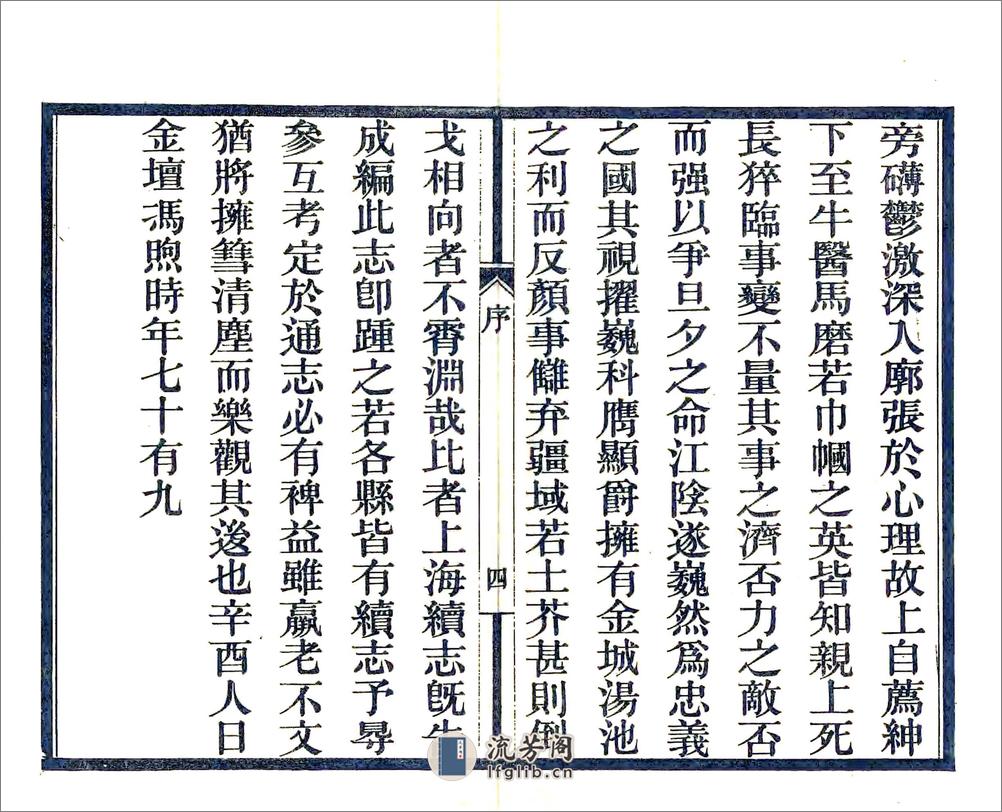 旁礴鬱激深入廓張於心理故上自薦紳
下至牛醫馬磨若巾幗之英皆知親上死
長猝臨事變不量其事之濟否力之敵否
而强以爭旦夕之命江陰遂巍然爲忠義
之國其視擢巍科膺顯爵擁有金城湯池
之利而反顏事讎弃疆域若土芥甚則倒
序
四
戈相向者不霄淵哉比者上海續志旣先
成編此志卽踵之若各縣皆有續志予㝷
參互考定於通志必有裨益雖羸老不文
猶將擁篲清塵而樂觀其後也辛酉人日
金壇馮煦時年七十有九
流芳阁
lfglib.cn